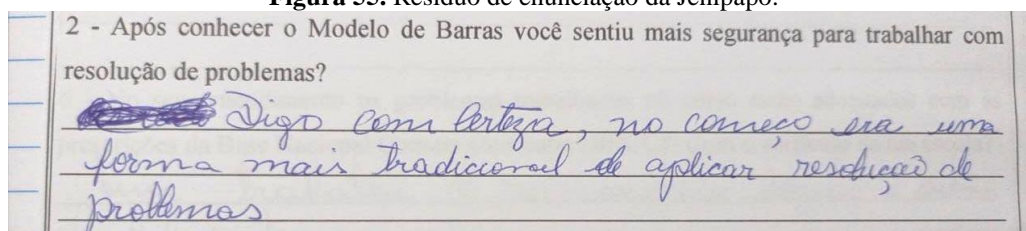 Figura 55. Resíduo de enunciação da Jenipapo.
2 - Após conhecer o Modelo de Barras você sentiu mais segurança para trabalhar com
resolução de problemas?
Digo com certeza, no começo era uma
forma mais tradicional de aplicar, resolução de
problemas